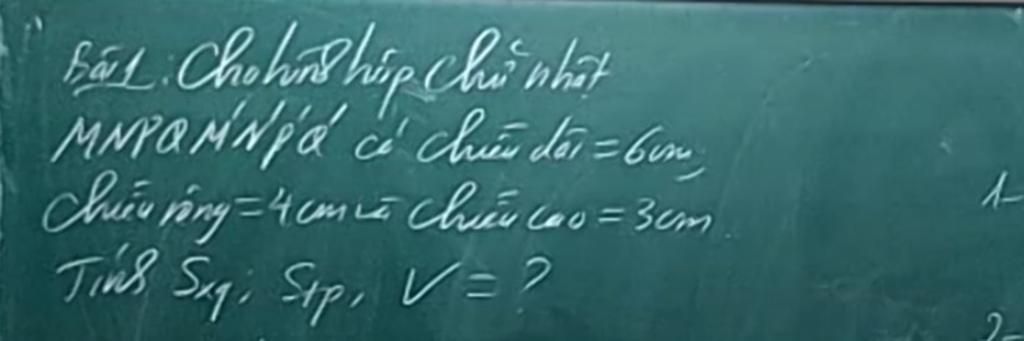 Bài 1: Cho hình hộp chữ nhật
MNPQM'N'P'Q' có chiều dài = 6cm,
chiều rộng = 4cm và chiều cao = 3cm.
Tính Sxq, Stp, V = ?
1-
2-